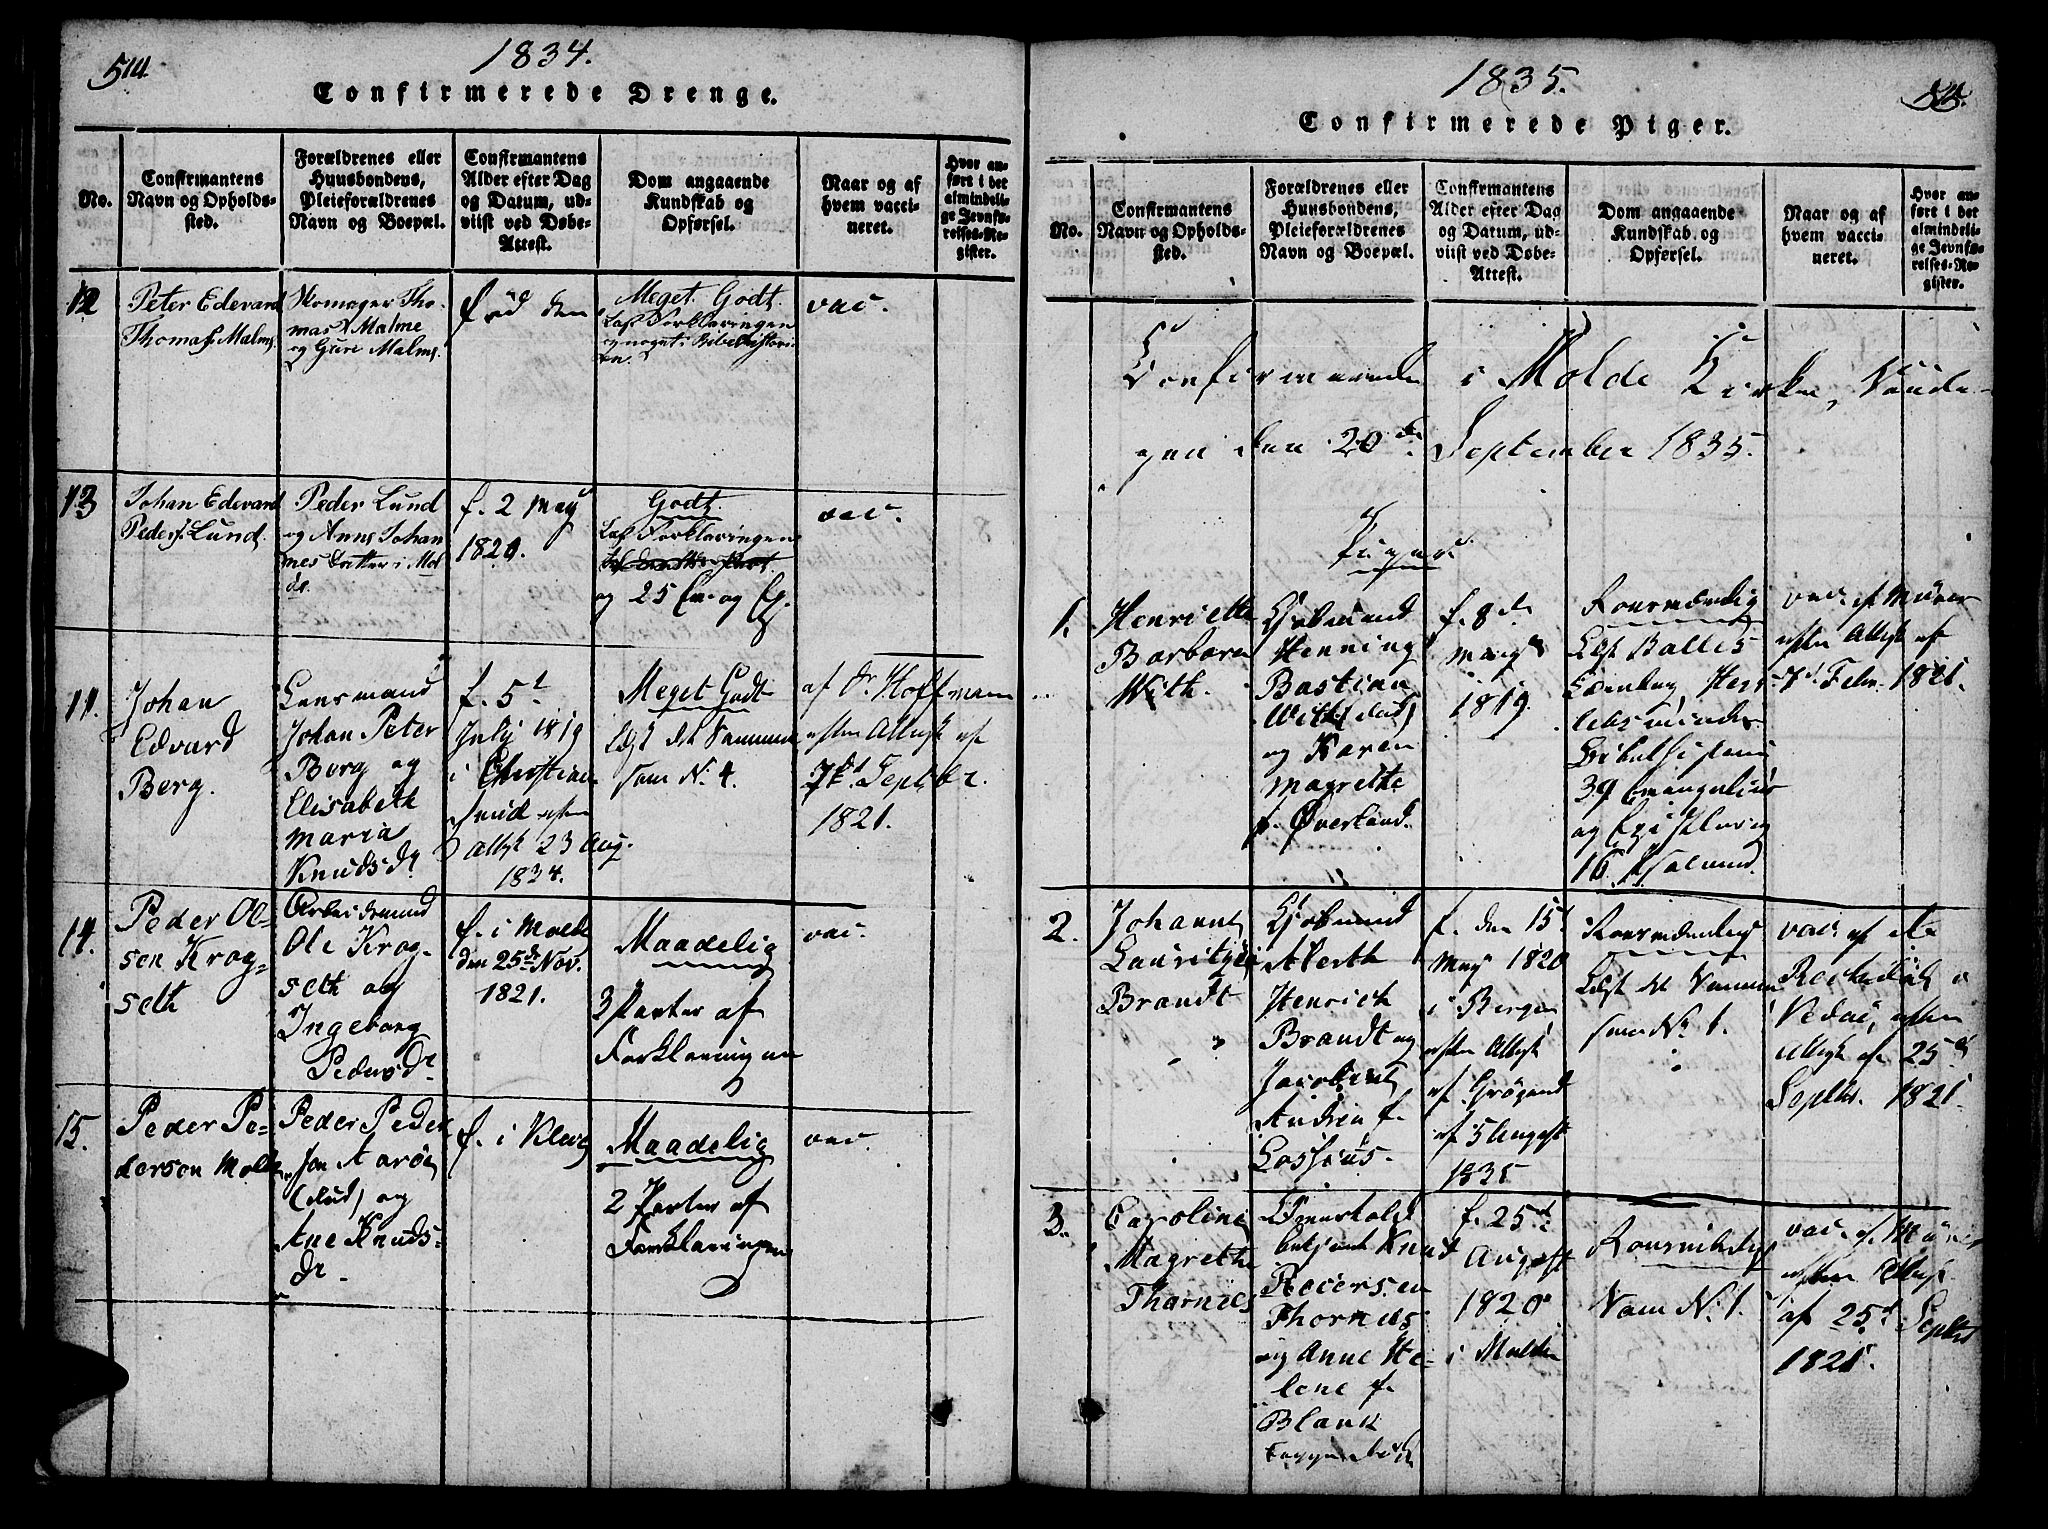 514.
1834.
Confirmerede Drenge.
No.
Confirmantens
Navn og Opholds-
sted.
Forældrenes eller
Huusbondens,
Pleieforældrenes
Navn og Boepæl.
Confirmantens
Alder efter Dag
og Datum, ud-
viist ved Døbe-
Attest.
Dom angaaende
Kundskab og
Opførsel.
Naar og af
hvem vacci-
neret.
Hvor an-
ført i det
almindeli-
ge Jevnfø-
relses-Re-
gister.
12
Peter Edevard
Thomas Malme
Skomager Tho-
mas Malme
og Guri Malme
Meget Godt
Læst Forklaringen
og noget Bibelhistori-
en
vac.
13
Johan Edevard
Peders. Lund.
Peder Lund
og Anne Johan
nes Datter i Mol
de.
f. 2 May
1820.
Godt.
Læst Forklaringen
og 25 Ev. og Ep.
vac.
11.
Johan
Edvard
Berg.
Lensmand
Johan Peter
Berg og
Elisabeth
Maria
Knudsdr
f. 5t
July 1819
i Christian
sund efter
Attest 23 Aug.
1834.
Meget Godt
Læst det Samme
som N. 4.
af Dr Hoffmann
efter Attest af
7de Septbr.
1821.
14.
Peder Ol-
sen Krog-
seth
Arbeidsmand
Ole Krog-
seth og
Ingeborg
Pedersdr
f. i Molde
den 25de Nov.
1821.
Maadelig
3 Parter af
Forklaringen
vac.
15.
Peder Pe-
dersen Molde
Peder Peder
sen Aarøe
(død) og
Ane Knuds-
dr
f. i Kleve
Maadelig
2 Parter af
Forklaringen
vac.
1835.
Confirmerede Piger.
No.
Confirmantens
Navn og Opholds-
sted.
Forældrenes eller
Huusbondens,
Pleieforældrenes
Navn og Boepæl.
Confirmantens
Alder efter Dag
og Datum, ud-
viist ved Døbe-
Attest.
Dom angaaende
Kundskab og
Opførsel.
Naar og af
hvem vacci-
neret.
Hvor an-
ført i det
almindeli-
ge Jevnfø-
relses-Re-
gister.
Confirmerede i Molde Kirke, Sønda-
gen den 20de September 1835.
Piger.
1.
Henriette
Barbara
With.
Kjøbmand
Henning
Bastian
With (død)
og Karen
Magrethe
f. Øverland.
f. 8de
May
1819.
Roesværdig
Læst Balles
Lærebog, Hers-
lebs mindre
Bibelhistorie
39 Evangelier
og Epistler og
16 Psalmer.
vac. af
efter Attest af
7d Febr. 1821.
2.
Johanne
Lauritze
Brandt
Kjøbmand
Alerth
Henrich
Brandt og
Jacobine
Andrea f.
Lossius.
f. den 15d
May 1820
i Bergen
efter Attest
af
af 5 August
1835
Roesværdig
Læst det Samme
som N. 1.
vac. af
efter
Attest af 25d
Septbr. 1821.
3.
Caroline
Magrethe
Thornes
Knud
Roiersen
Thornes
og Anne He-
lene f.
Blank
f. 25de
August
1820
i Molde
Roesværdig
Som N. 1.
vac. af
efter Attest
af 25d Septbr
1821.